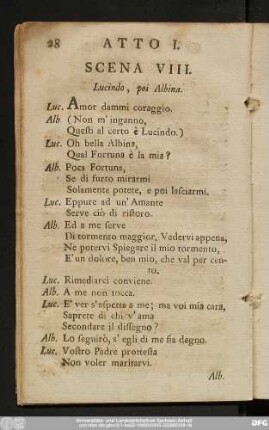 28 ATTO I.
SCENA VIII.
Lucindo, poi Albina.
Luc. Amor dammi coraggio.
Alb. (Non m'inganno,
Questi al certo è Lucindo.)
Luc. Oh bella Albina,
Qual Fortuna è la mia?
Alb. Poca Fortuna,
Se di furto mirarmi
Solamente potete, e poi lasciarmi.
Luc. Eppure ad un' Amante
Serve ciò di ristoro.
Alb. Ed a me serve
Di tormento maggior, Vedervi appena,
Ne potervi Spiegare il mio tormento,
E' un dolore, ben mio, che val per cen-
to.
Luc. Rimediarci conviene.
Alb. A me non tocca.
Luc. E' ver s'aspetta a me; ma voi mia cara,
Saprete di chi v'ama
Secondare il dissegno?
Alb. Lo seguirò, s' egli di me fia degno.
Luc. Vostro Padre protesta
Non voler maritarvi.
Alb.